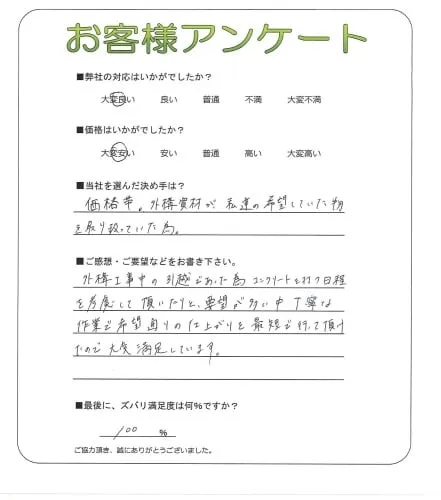 お客様アンケート
■弊社の対応はいかがでしたか？
大変良い 良い 普通 不満 大変不満
■価格はいかがでしたか？
大変安い 安い 普通 高い 大変高い
■当社を選んだ決め手は？
価格帯。外構資材が私達の希望していた物
を取り扱っていた為。
■ご感想・ご要望などをお書き下さい。
外構工事中の引越であった為コンクリートを打つ日程
を考慮して頂いたりと、要望が多い中丁寧な
作業で希望通りの仕上がりを最短で行って頂け
たので大変満足しています。
■最後に、ズバリ満足度は何％ですか？
100 %
ご協力頂き、誠にありがとうございました。